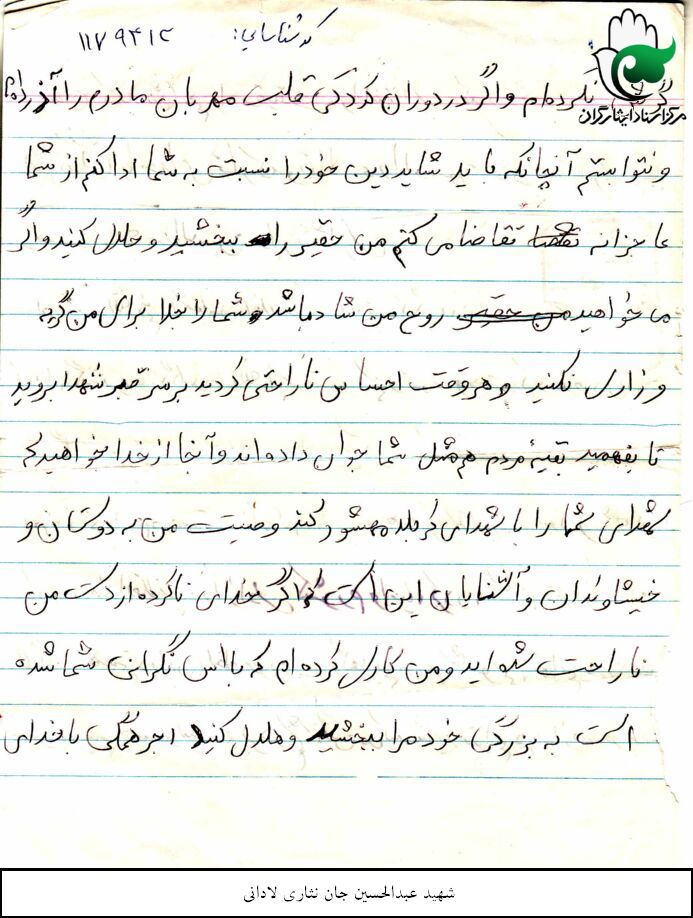 کد شناسایی: ۱۱۷۹۴۱۲
مرکز اسناد ایثارگران
نکرده‌ام و اگر در دوران کودکی قلب مهربان مادرم را آزرده‌ام
و نتوانستم آنچنانکه باید شاید دین خود را نسبت به شما ادا کنم از شما
عاجزانه تقاضا می کنم من حقیر را ببخشید و حلال کنید و اگر
می خواهید روح من شاد باشد شما را بخدا برای من گریه
و زاری نکنید و هر وقت احساس ناراحتی کردید بر سر قبر شهدا بروید
تا بفهمید بقیه مردم هم مثل شما جوان داده اند و آنجا از خدا بخواهید که
شهدای شما را با شهدای کربلا مهشور کند وصیت من به دوستان و
خیشاوندان و آشنایان این است که اگر خدای ناکرده از دست من
ناراحت شواید و من کاری کرده ام که بااس نگرانی شما شده
است به بزرگی خود مرا ببخشید و هلال کنید اجر همگی با خدای
شهید عبدالحسین جان نثاری لادانی